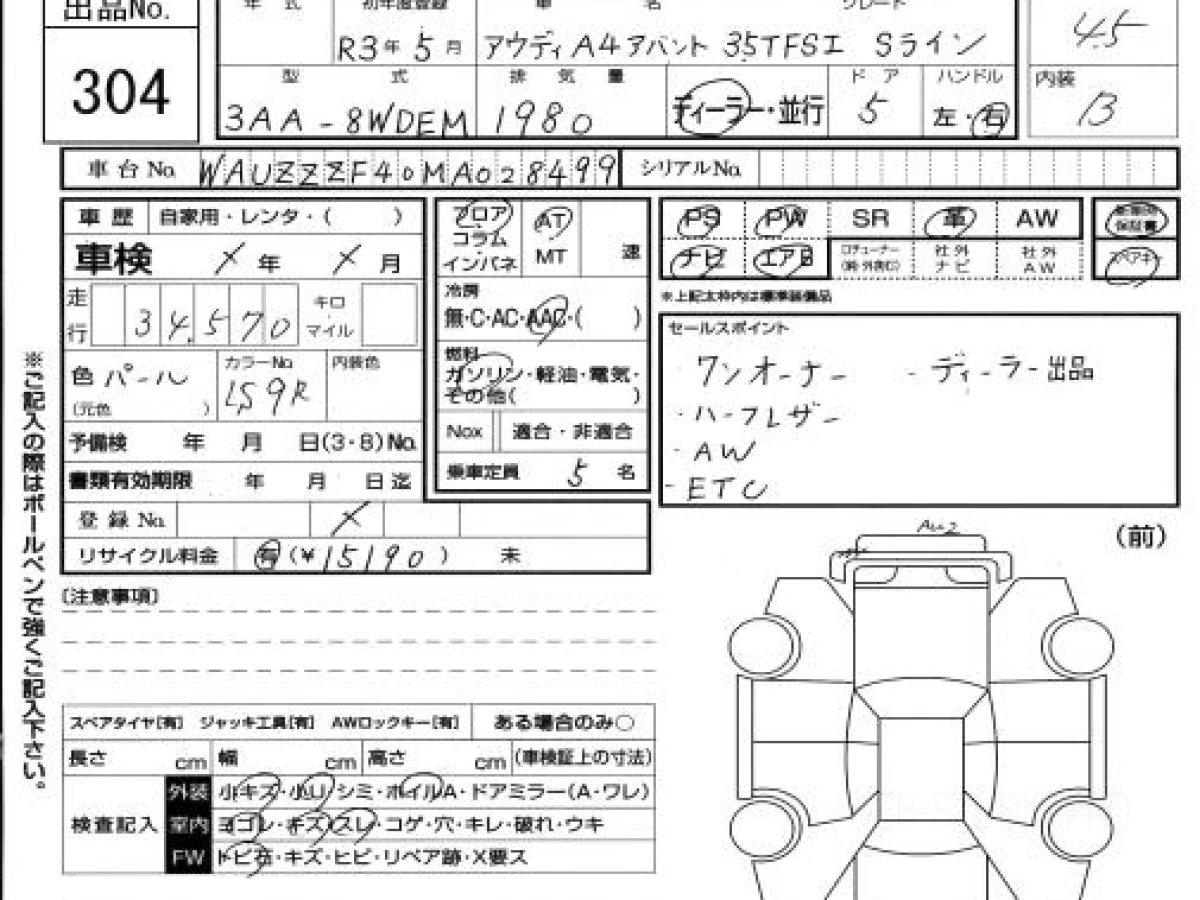 出品No.
304
年 式 初年度登録 車 名 グレード
R3年 5月 アウディ A4アバント 35TFSI Sライン
4.5
型 式 排 気 量 ディーラー・並行 ド ア ハンドル 内装
3AA-8WDEM 1980 5 左・右 B
車 台 No. WAUZZZF40MA028499 シリアルNo.
車 歴 自家用・レンタ・( )
車検 X 年 X 月
走行 34,570 キロ マイル
色 パール カラーNo. LS9R 内装色
(元色 )
予備検 年 月 日(3・8)No.
書類有効期限 年 月 日迄
登 録 No. X
リサイクル料金 有(¥15190) 未
フロア コラム インパネ
AT MT 速
冷房
無・C・AC・AAC・( )
燃料
ガソリン・軽油・電気・
その他( )
Nox 適合・非適合
乗車定員 5 名
PS PW SR 革 AW 保証書
ナビ エアB 社外ナビ 社外AW スペアキー
※上記太枠内は標準装備品
セールスポイント
・ワンオーナー ・ディーラー出品
・ハーフレザー
・AW
・ETC
※ご記入の際はボールペンで強くご記入下さい。
(注意事項)
(前)
スペアタイヤ[有] ジャッキ工具[有] AWロックキー[有] ある場合のみ○
長さ cm 幅 cm 高さ cm (車検証上の寸法)
検査記入
外装 小キズ・小U・シミ・ホイルA・ドアミラー(A・ワレ)
室内 ヨゴレ・キズ・スレ・コゲ・穴・キレ・破れ・ウキ
FW トビ石・キズ・ヒビ・リペア跡・X要ス